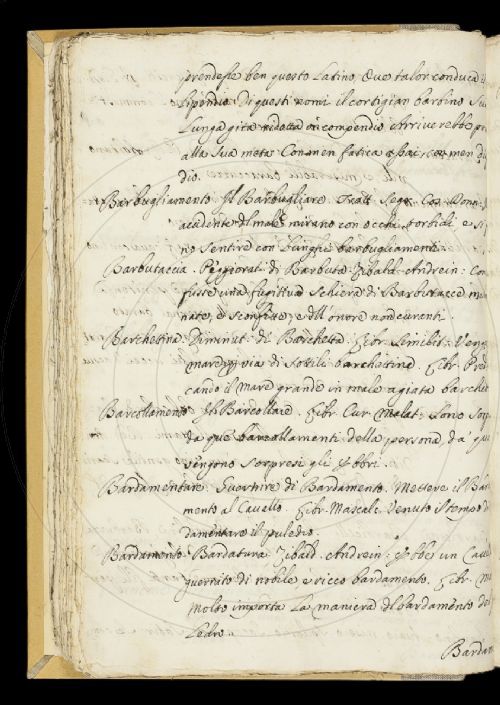 prendesse ben questo Latino, Ove talor conduca
sipendio. Di questi nomi il cortigian barbino
Lunga gita ridotta in compendio Arriverebbe
alla Sua meta Con men fatica assai, con men
dio.
Barbugliamento. Il Barbugliare. Tratt. Segr. Cos. Donn.
accidente del male mirano con occhi torbidi e si
no sentire con lunghi barbugliamenti.
Barbutaccia. Peggiorat. di Barbuta. Zibald. Andrein: Con
fusse una fuggitiva schiera di Barbutacce
nate, e sconfitte, e dell'onore noncuranti.
Barchettina. Diminut. di Barchetta. Libr. Similit.
mare per via di sottili barchettine. Libr. Pred
cando il mare grande in male agiata barchett
Barcollamento. Il Barcollare. Libr. Cur. Malat. Sono
da que' barcollamenti della persona, da' qua
vengono sorpresi gli Ebbri.
Bardamentare. Guernire di Bardamento. Mettere il Bar
mento al Cavallo. Libr. Mascalc. Venuto il tempo di
damentare il puledro.
Bardamento. Bardatura. Zibald. Andrein: Ebbe un Caval
guernito di nobile e ricco bardamento. Libr. M
Molto importa la maniera del bardamento del
ledro.
Bardam